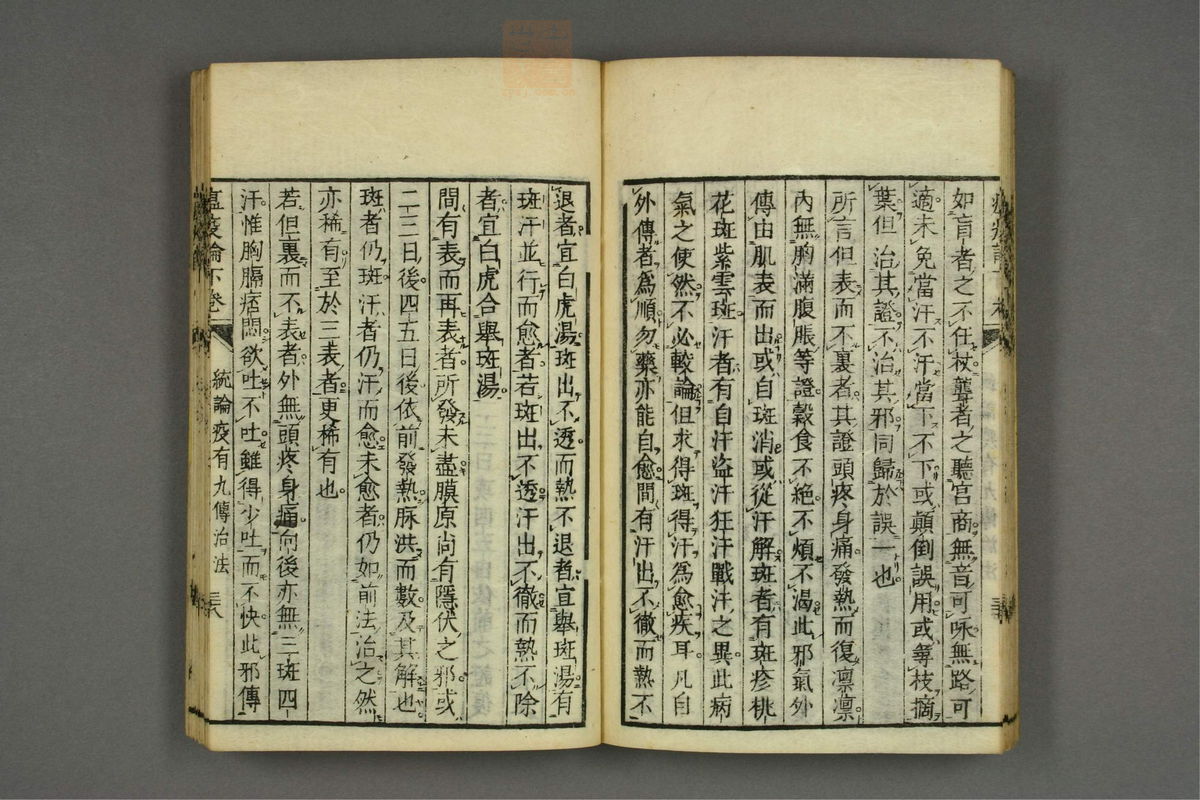 如盲者之不任杖聾者之聽宮商無音可咏無路可
適未免當汗不汗當下不下或顛倒誤用或尋枝摘
葉但治其證不治其邪同歸於誤一也
所言但表而不裏者其證頭疼身痛發熱而復凛凛
內無胸滿腹脹等證穀食不絶不煩不渴此邪氣外
傳由肌表而出或自斑消或從汗解斑者有斑疹桃
花斑紫雲斑汗者有自汗盜汗狂汗戰汗之異此病
氣之使然不必較論但求得斑得汗為愈疾耳凡自
外傳者為順勿藥亦能自愈間有汗出不徹而熱不
退者宜白虎湯斑出不透而熱不退者宜舉斑湯有
斑汗並行而愈者若斑出不透汗出不徹而熱不除
者宜白虎合舉斑湯
間有表而再表者所發未盡膜原尚有隱伏之邪或
二三日後四五日後依前發熱脉洪而數及其解也
斑者仍斑汗者仍汗而愈未愈者仍如前法治之然
亦稀有至於三表者更稀有也
若但裏而不表者外無頭疼身痛向後亦無三斑四
汗惟胸膈痞悶欲吐不吐雖得少吐而不快此邪傳
瘟疫論下卷 統論疫有九傳治法 三八